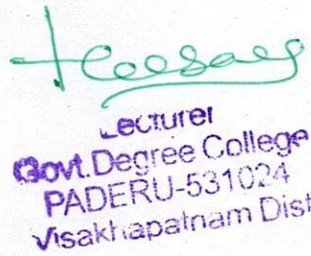 Lecturer
Govt.Degree College
PADERU-531024
Visakhapatnam Dist